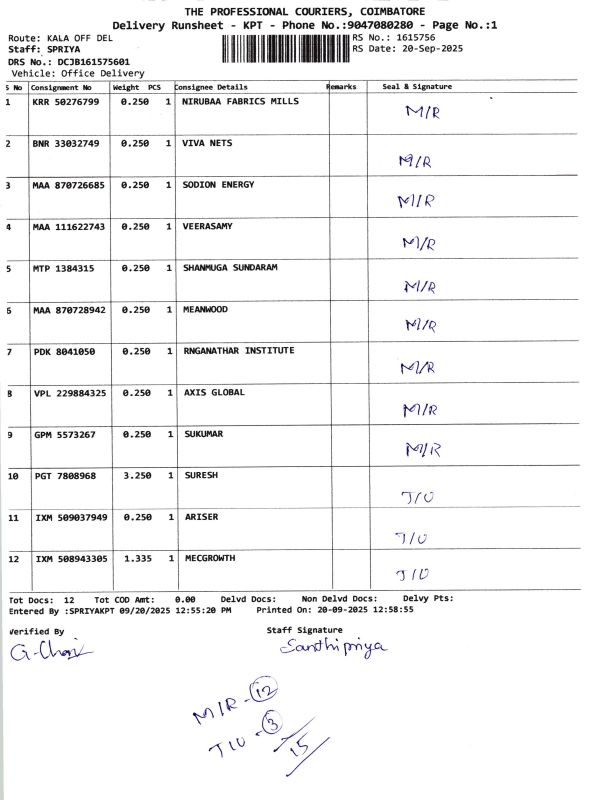 THE PROFESSIONAL COURIERS, COIMBATORE
Delivery Runsheet - KPT - Phone No.:9047080280 - Page No.:1
Route: KALA OFF DEL RS No.: 1615756
Staff: SPRIYA RS Date: 20-Sep-2025
DRS No.: DCJB161575601
Vehicle: Office Delivery
S No Consignment No Weight PCS Consignee Details Remarks Seal & Signature
1 KRR 50276799 0.250 1 NIRUBAA FABRICS MILLS M/R
2 BNR 33032749 0.250 1 VIVA NETS M/R
3 MAA 870726685 0.250 1 SODION ENERGY M/R
4 MAA 111622743 0.250 1 VEERASAMY M/R
5 MTP 1384315 0.250 1 SHANMUGA SUNDARAM M/R
6 MAA 870728942 0.250 1 MEANWOOD M/R
7 PDK 8041050 0.250 1 RNGANATHAR INSTITUTE M/R
8 VPL 229884325 0.250 1 AXIS GLOBAL M/R
9 GPM 5573267 0.250 1 SUKUMAR M/R
10 PGT 7808968 3.250 1 SURESH T/U
11 IXM 509037949 0.250 1 ARISER T/U
12 IXM 508943305 1.335 1 MECGROWTH T/U
Tot Docs: 12 Tot COD Amt: 0.00 Delvd Docs: Non Delvd Docs: Delvy Pts:
Entered By :SPRIYAKPT 09/20/2025 12:55:20 PM Printed On: 20-09-2025 12:58:55
Verified By Staff Signature
Santhipriya
M/R - 12
T/U - 3
15